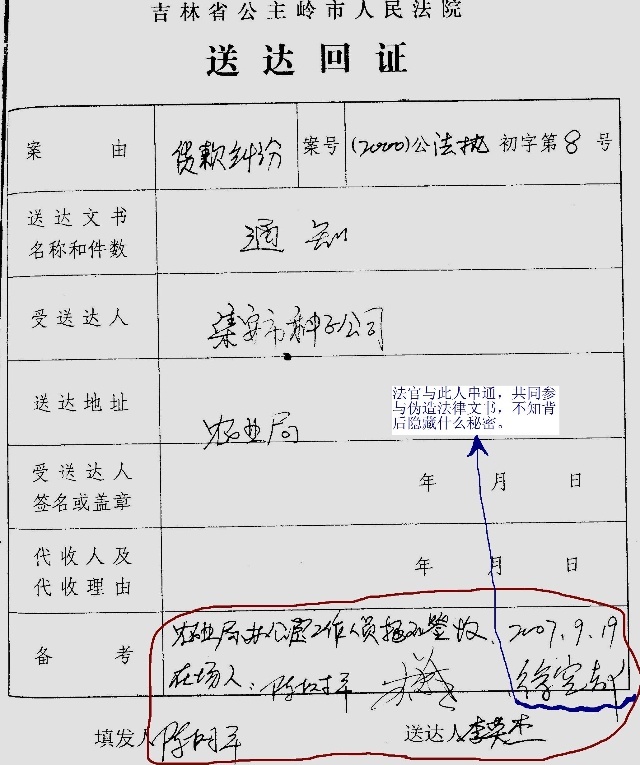 吉林省公主岭市人民法院
送达回证
案由 货款纠纷 案号 (2000)公法执 初字第8号
送达文书
名称和件数 通知
受送达人 集安市种子公司
送达地址 农业局
法官与此人串通，共同参
与伪造法律文书，不知背
后隐藏什么秘密。
受送达人
签名或盖章 年 月 日
代收人及
代收理由 年 月 日
备考 农业局办公室工作人员拒不签收、2007.9.19
在场人：
填发人 送达人 李英杰